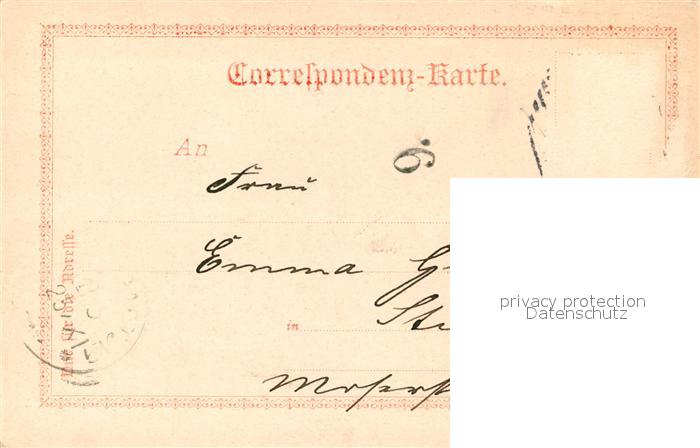 Correspondenz-Karte.
An
9.
Frau
Emma G
in St
Moserst
Nur für die Adresse.
privacy protection
Datenschutz